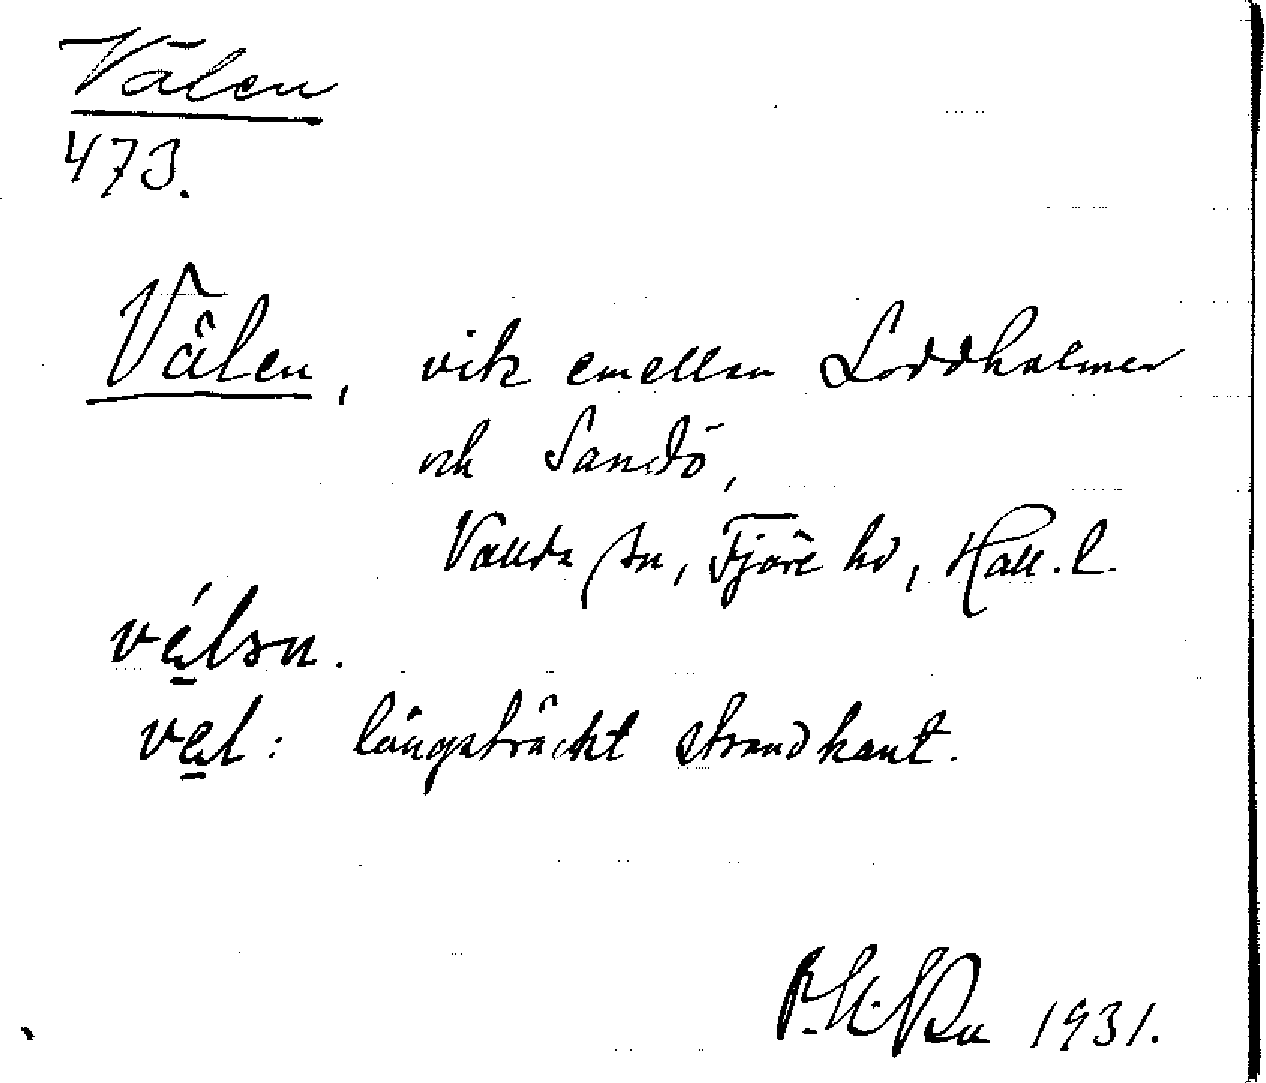 Välen
473.
Välen, vik emellan Loddholmen
och Sandö,
Vallda sn, Fjäre hd, Hall. l.
vęlən.
vęl: långsträckt strandkant.
1931.